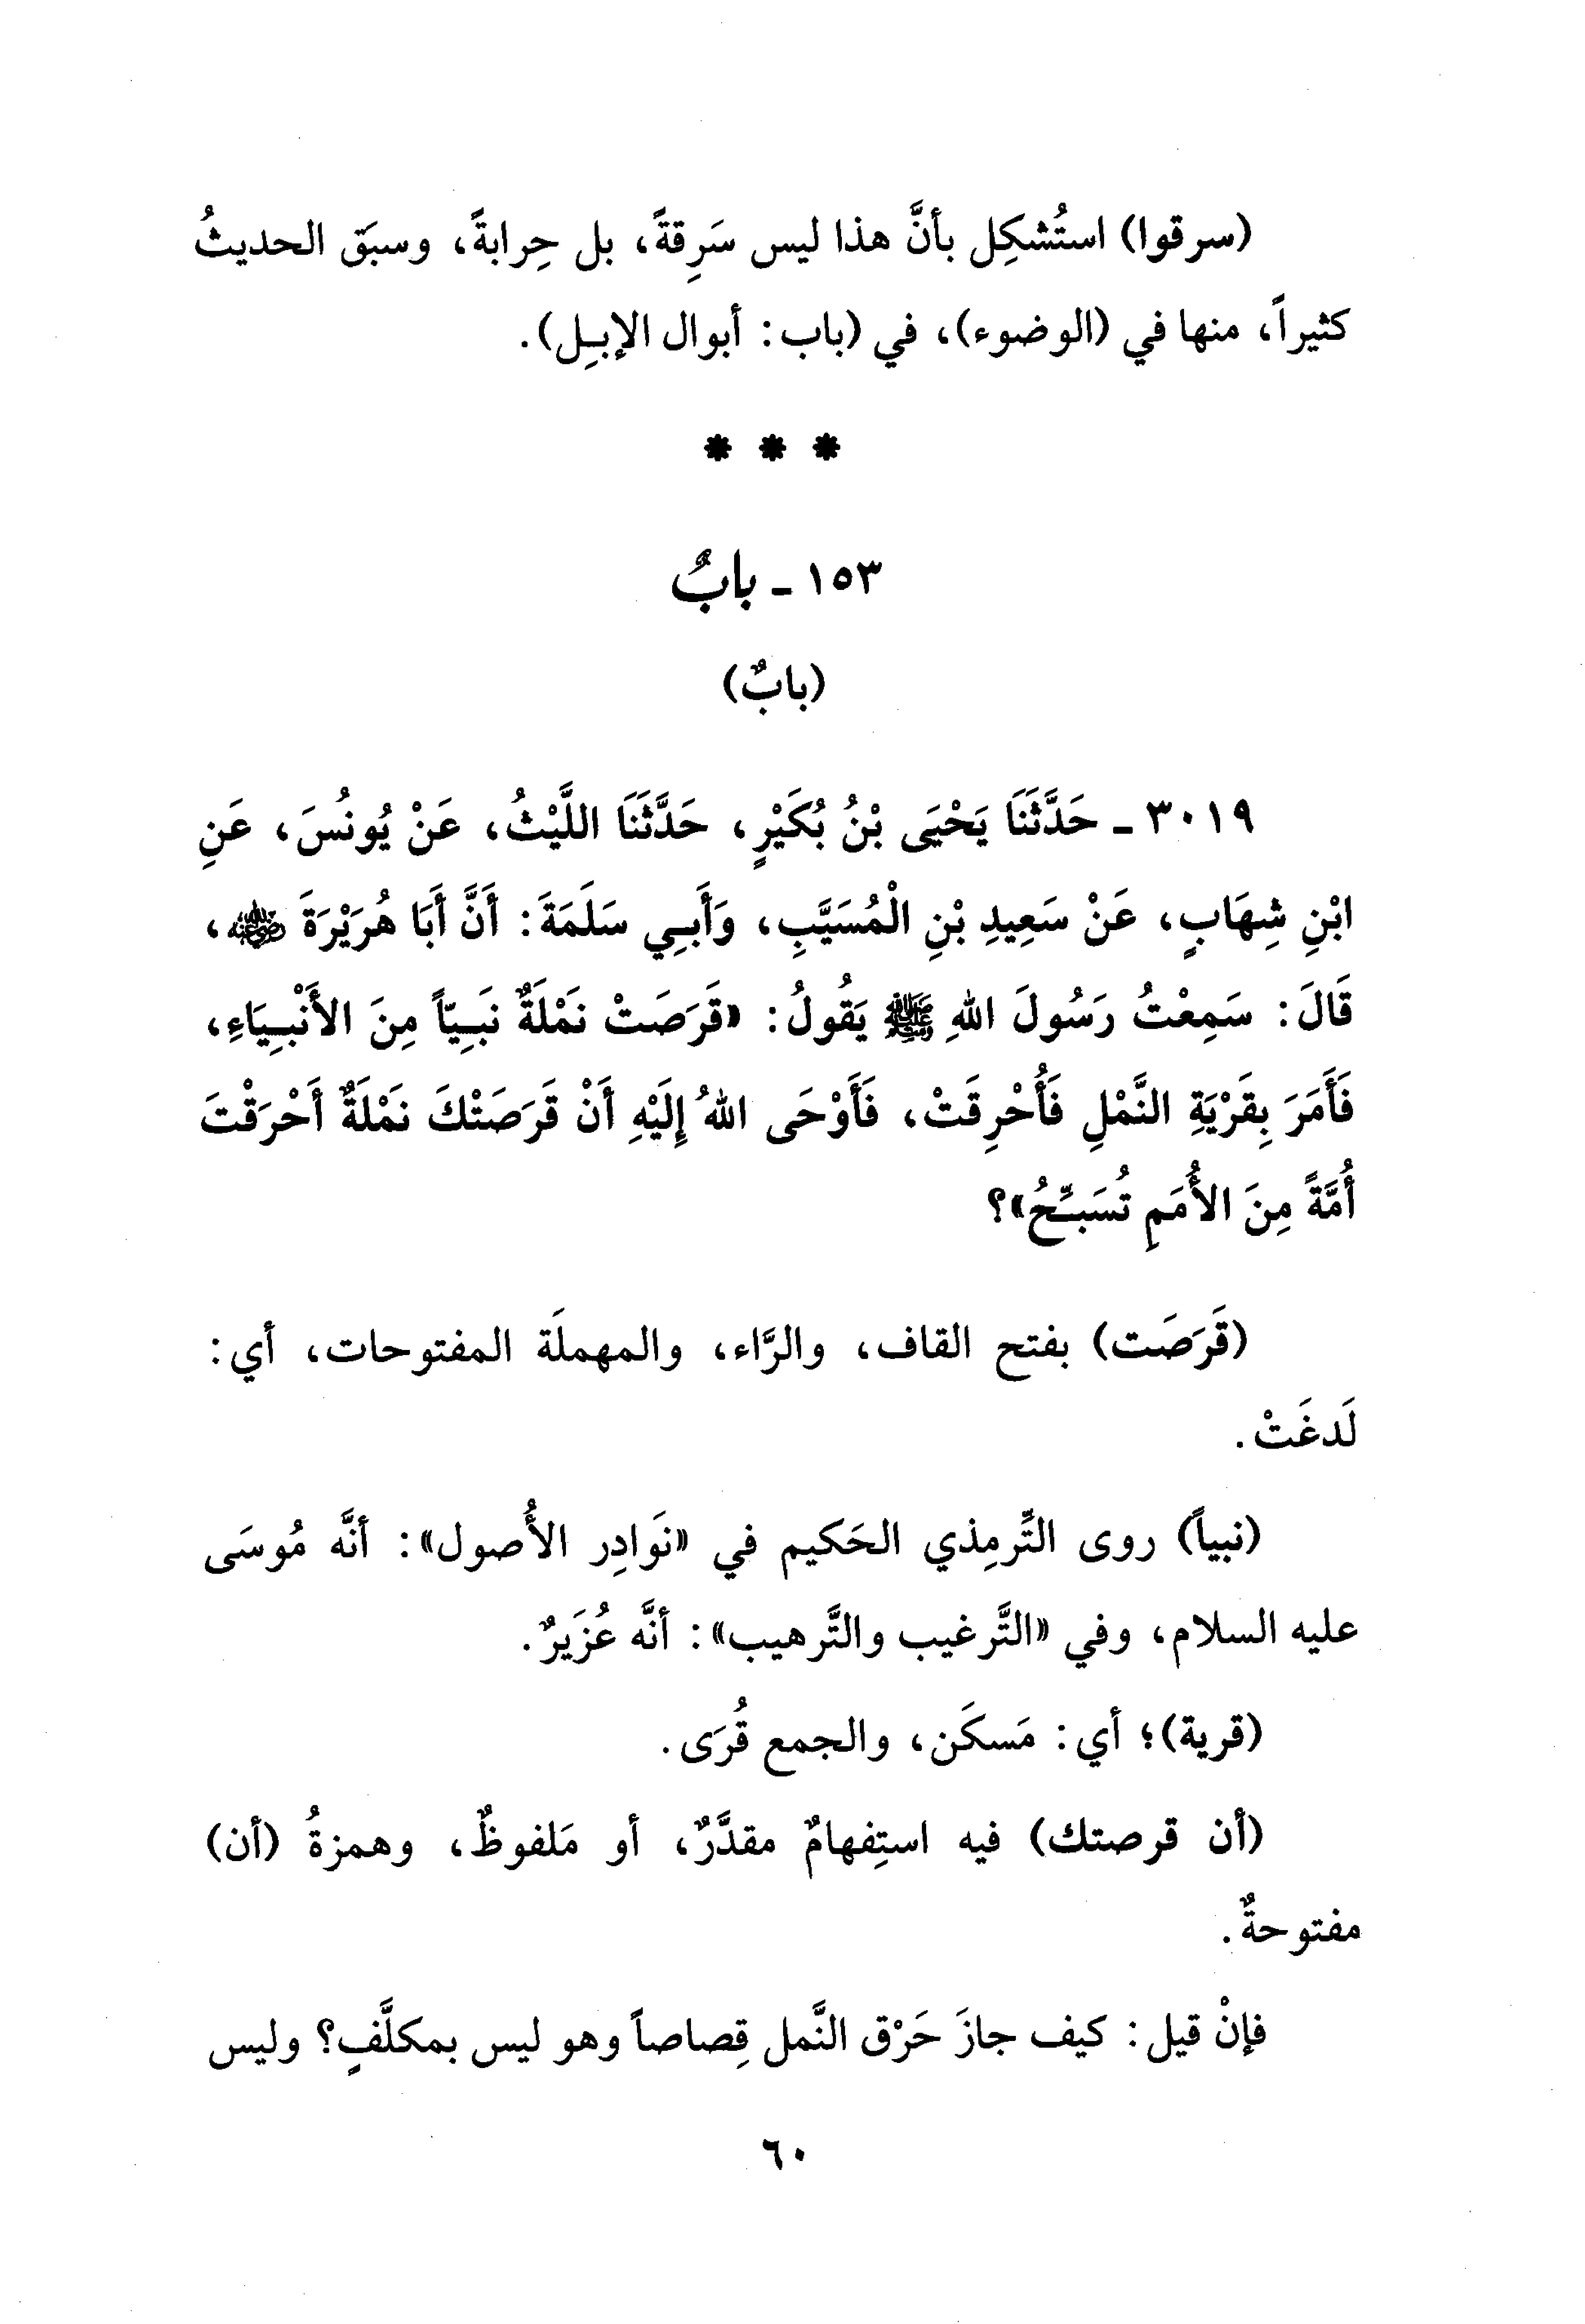 (سرقوا) استُشكِل بأنَّ هذا ليس سَرِقةً، بل حِرابةً، وسبَق الحديثُ
كثيراً، منها في (الوضوء)، في (باب: أبوال الإبـِل).
* * *
١٥٣ ـ بابٌ
(بابٌ)
٣٠١٩ ـ حَدَّثَنَا يَحْيَى بْنُ بُكَيْرٍ، حَدَّثَنَا اللَّيْثُ، عَنْ يُونُسَ، عَنِ
ابْنِ شِهَابٍ، عَنْ سَعِيدِ بْنِ الْمُسَيَّبِ، وَأَبـِي سَلَمَةَ: أَنَّ أَبَا هُرَيْرَةَ رضي الله عنه،
قَالَ: سَمِعْتُ رَسُولَ اللهِ ﷺ يَقُولُ: «قَرَصَتْ نَمْلَةٌ نَبـِيّاً مِنَ الأَنْبـِيَاءِ،
فَأَمَرَ بِقَرْيَةِ النَّمْلِ فَأُحْرِقَتْ، فَأَوْحَى اللهُ إِلَيْهِ أَنْ قَرَصَتْكَ نَمْلَةٌ أَحْرَقْتَ
أُمَّةً مِنَ الأُمَمِ تُسَبـِّحُ»؟
(قَرَصَت) بفتح القاف، والرَّاء، والمهملَة المفتوحات، أي:
لَدغَتْ.
(نبياً) روى التِّرمِذي الحَكيم في «نَوادِر الأُصول»: أنَّه مُوسَى
عليه السلام، وفي «التَّرغيب والتَّرهيب»: أنَّه عُزَيرٌ.
(قرية)؛ أي: مَسكَن، والجمع قُرَى.
(أن قرصتك) فيه استِفهامٌ مقدَّرٌ، أو مَلفوظٌ، وهمزةُ (أن)
مفتوحةٌ.
فإنْ قيل: كيف جازَ حَرْق النَّمل قِصاصاً وهو ليس بمكلَّفٍ؟ وليس
٦٠